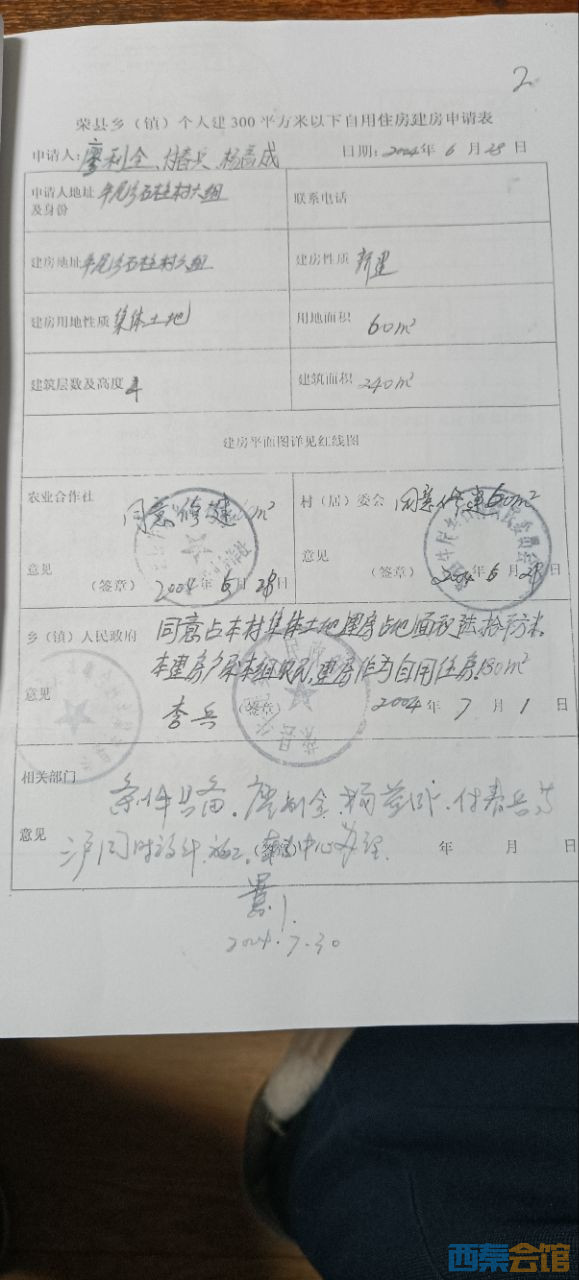 2
荣县乡（镇）个人建300平方米以下自用住房建房申请表
申请人：廖利全、付春兵、杨 成 日期：2004年6月28日
申请人地址及身份 牛尾 石柱村六组 联系电话
建房地址 牛尾 石柱村六组 建房性质 新建
建房用地性质 集体土地 用地面积 60m²
建筑层数及高度 4 建筑面积 240m²
建房平面图详见红线图
农业合作社 同意修建 m² 村（居）委会 同意修建60m²
意见 （签章） 2004年6月28日 意见 （签章） 2004年6月28日
乡（镇）人民政府 同意占本村集体土地建房占地面积陆拾平方米。
本建房户属本组农民，建房作为自用住房180m²
意见 李兵 （签章） 2004年7月1日
相关部门 条件具备。廖利全、杨 、付春兵等
意见 三户同时设计、施工。 中心办理. 年 月 日
2004.7.30
西秦会馆